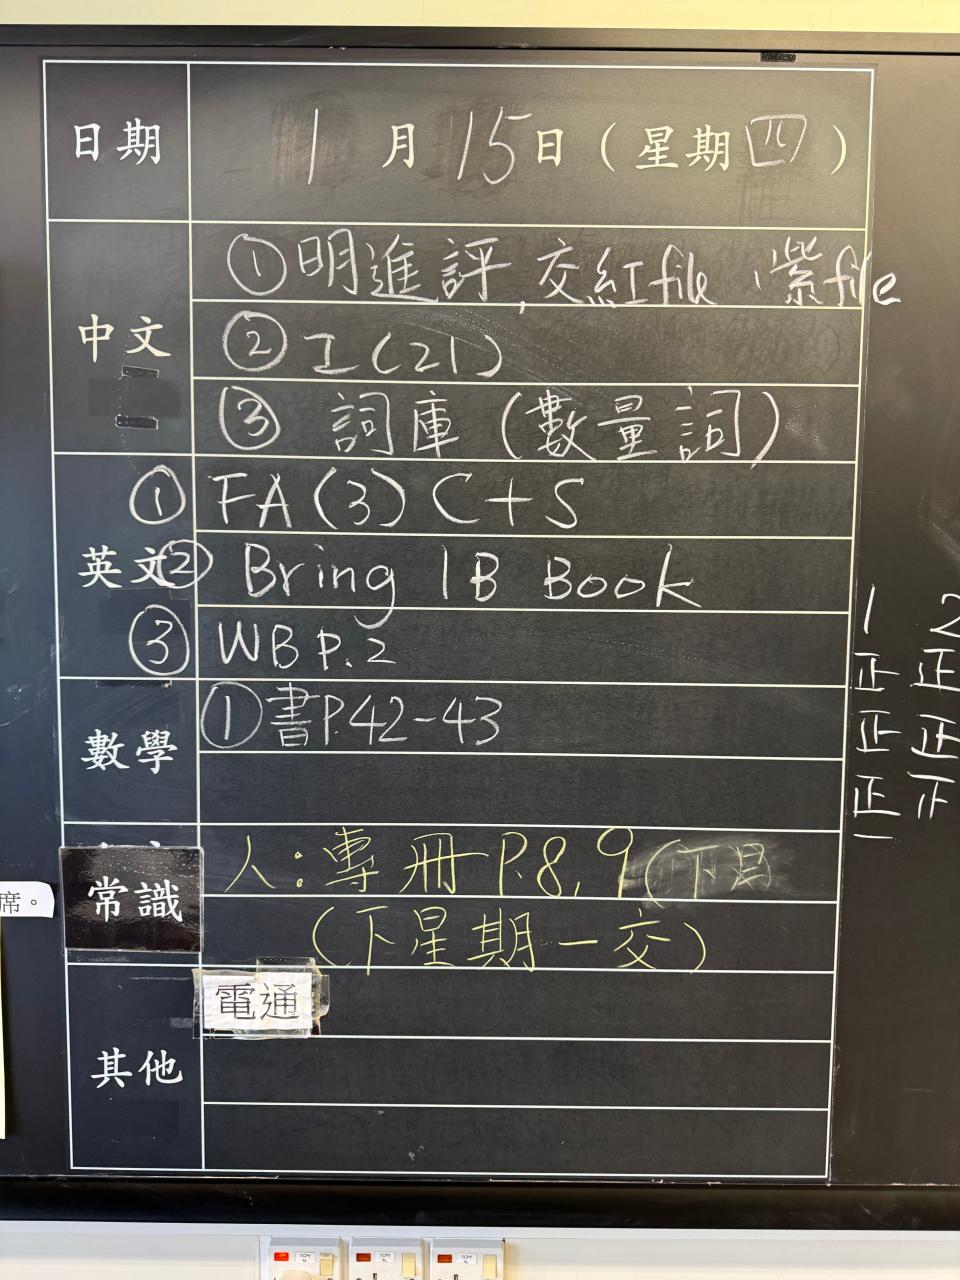 日期 1月15日（星期四）
中文
①明進評,交紅file、紫file
②工(21)
③詞庫(數量詞)
英文
①FA(3)C+S
②Bring 1B Book
③WB P.2
數學
①書P.42-43
常識
人：專冊P.8,9(下星
(下星期一交)
其他
電通
席。
1 2
正 正
正 正
正 下
一